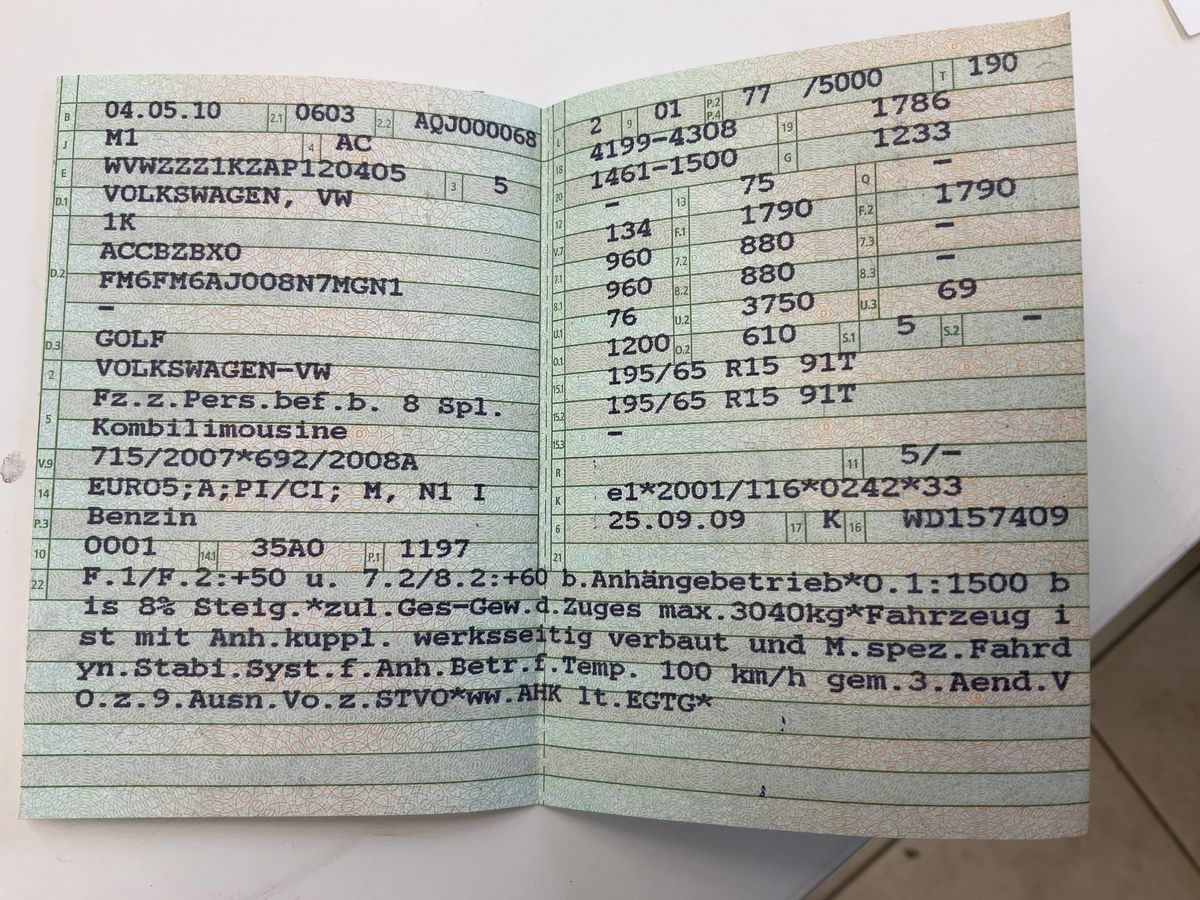 B 04.05.10 2.1 0603 2.2 AQJ000068
J M1 4 AC
E WVWZZZ1KZAP120405 3 5
D.1 VOLKSWAGEN, VW
1K
D.2 ACCBZBX0
FM6FM6AJ008N7MGN1
–
D.3 GOLF
2 VOLKSWAGEN-VW
5 Fz.z.Pers.bef.b. 8 Spl.
Kombilimousine
V.9 715/2007*692/2008A
14 EURO5;A;PI/CI; M, N1 I
P.3 Benzin
10 0001 14.1 35A0 P.1 1197
L 2 9 01 P.2 P.4 77 /5000 T 190
18 4199-4308 19 1786
20 1461-1500 G 1233
12 – 13 75 Q –
V.7 134 F.1 1790 F.2 1790
7.1 960 7.2 880 7.3 –
8.1 960 8.2 880 8.3 –
U.1 76 U.2 3750 U.3 69
O.1 1200 O.2 610 S.1 5 S.2 –
15.1 195/65 R15 91T
15.2 195/65 R15 91T
15.3 –
R 11 5/–
K e1*2001/116*0242*33
6 25.09.09 17 K 16 WD157409
21
22 F.1/F.2:+50 u. 7.2/8.2:+60 b.Anhängebetrieb*O.1:1500 b
is 8% Steig.*zul.Ges-Gew.d.Zuges max.3040kg*Fahrzeug i
st mit Anh.kuppl. werksseitig verbaut und M.spez.Fahrd
yn.Stabi.Syst.f.Anh.Betr.f.Temp. 100 km/h gem.3.Aend.V
O.z.9.Ausn.Vo.z.STVO*ww.AHK lt.EGTG*